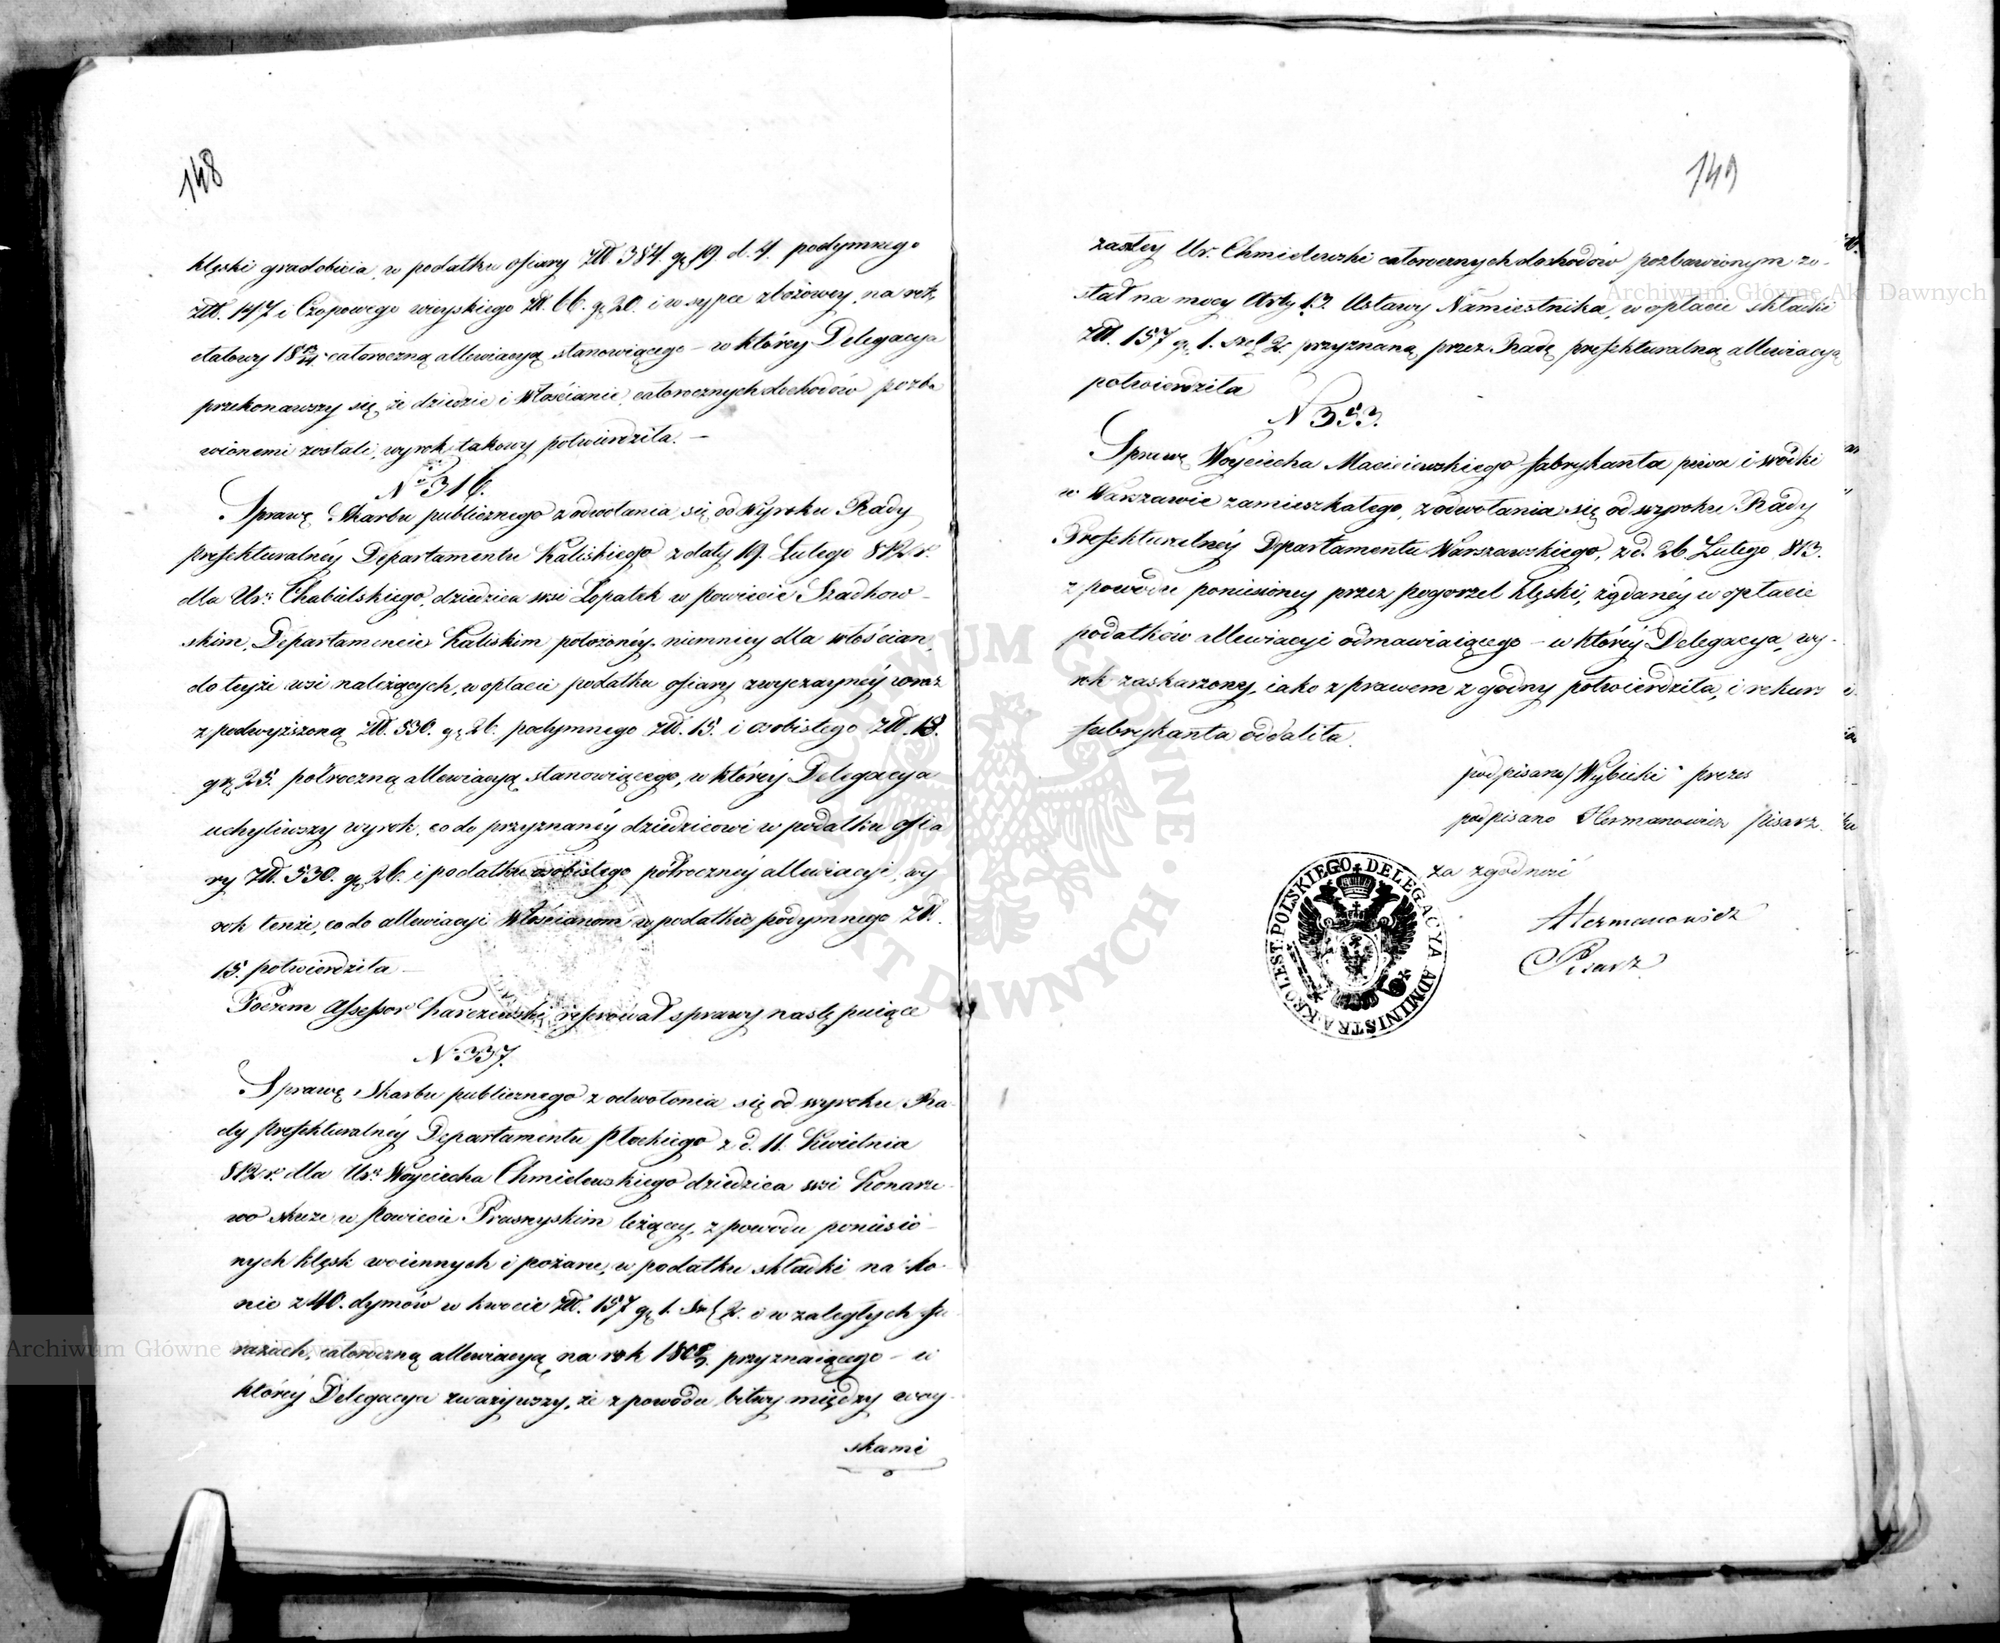 148
klęski gradobicia, w podatku ofiary Złł. 384. gr 19. d. 4. podymnego
Złł. 147 i Czopowego wieyskiego Złł. 66. gr 20. i w sypce zbożowey, na rok
etatowy całoroczną allewiacyą stanowiącego – w któréy Delegacya
przekonawszy się, że dziedzic i Włościanie, całorocznych dochodów pozba
wionemi zostali, wyrok takowy potwierdziła. –
No 316.
Sprawę Skarbu publicznego z odwołania się od Wyroku Rady
prefekturalnéy Departamentu Kaliskiego z daty 19. Lutego 812 r.
dla Ur: Chabielskiego, dziedzica wsi Łopatek w Powiecie Szadkow-
skim, Departamencie Kaliskim położonéy, niemniey dla włościan,
do teyże wsi należących, w opłacie podatku ofiary zwyczaynéy wraz
z podwyższoną Złł. 530. gr 26. podymnego Złł. 15. i osobistego Złł. 18.
gr 25. półroczną allewiacyą stanowiącego, w któréy Delegacya
uchyliwszy wyrok, co do przyznanéy dziedzicowi w podatku ofia
ry Złł. 530. gr 26. i podatku osobistego półrocznéy allewiacyi, wy
rok tenże, co do allewiacyi Włościanom w podatku podymnego Zł.
15. potwierdziła –
Poczem Assessor Karczewski referował sprawy następuiące
No 337.
Sprawę Skarbu publicznego z odwołania się od wyroku Ra-
dy prefekturalnéy Departamentu Płockiego z d. 11. Kwietnia
812 r. dla Ur: Woyciecha Chmielewskiego dziedzica wsi Konarze
wo w Powiecie Przasnyskim leżącey, z powodu poniesio-
nych klęsk woiennych i pożaru, w podatku składki na ko-
nie z 40. dymów w kwocie Złł. 157 gr 1. szel 2. i w zaległych fu-
rażach, całoroczną allewiacyą na rok przyznaiącego – w
któréy Delegacya zważywszy, że z powodu bitwy między woy-
skami
149
zaszłey Ur. Chmielewski całorocznych dochodów pozbawionym zo-
stał na mocy Arty 13. Ustawy Namiestnika, w opłacie składki
Złł. 157 gr 1. szel 2. przyznaną przez Radę prefekturalną allewiacyą
potwierdziła
N 353.
Sprawę Woyciecha Macieiewskiego fabrykanta piwa i wódki
w Warszawie zamieszkałego, z odwołania się od wyroku Rady
Prefekturalnéy Departamentu Warszawskiego, z d. 26 Lutego 813.
z powodu poniesioney przez pogorzel klęski, żądanéy w opłacie
podatków allewiacyi odmawiaiącego – w któréy Delegacya, wy-
rok zaskarzony, iako z prawem zgodny potwierdziła, i rekurs
fabrykanta oddaliła.
podpisano/ Wybicki prezes
podpisano Hermanowicz Pisarz.
za zgodność
Hermanowicz
Pisarz
DELEGACYA ADMINISTRA. KROLEST: POLSKIEGO
ARCHIWUM GŁÓWNE AKT DAWNYCH
Archiwum Główne Akt Dawnych
Archiwum Główne Akt Dawnych